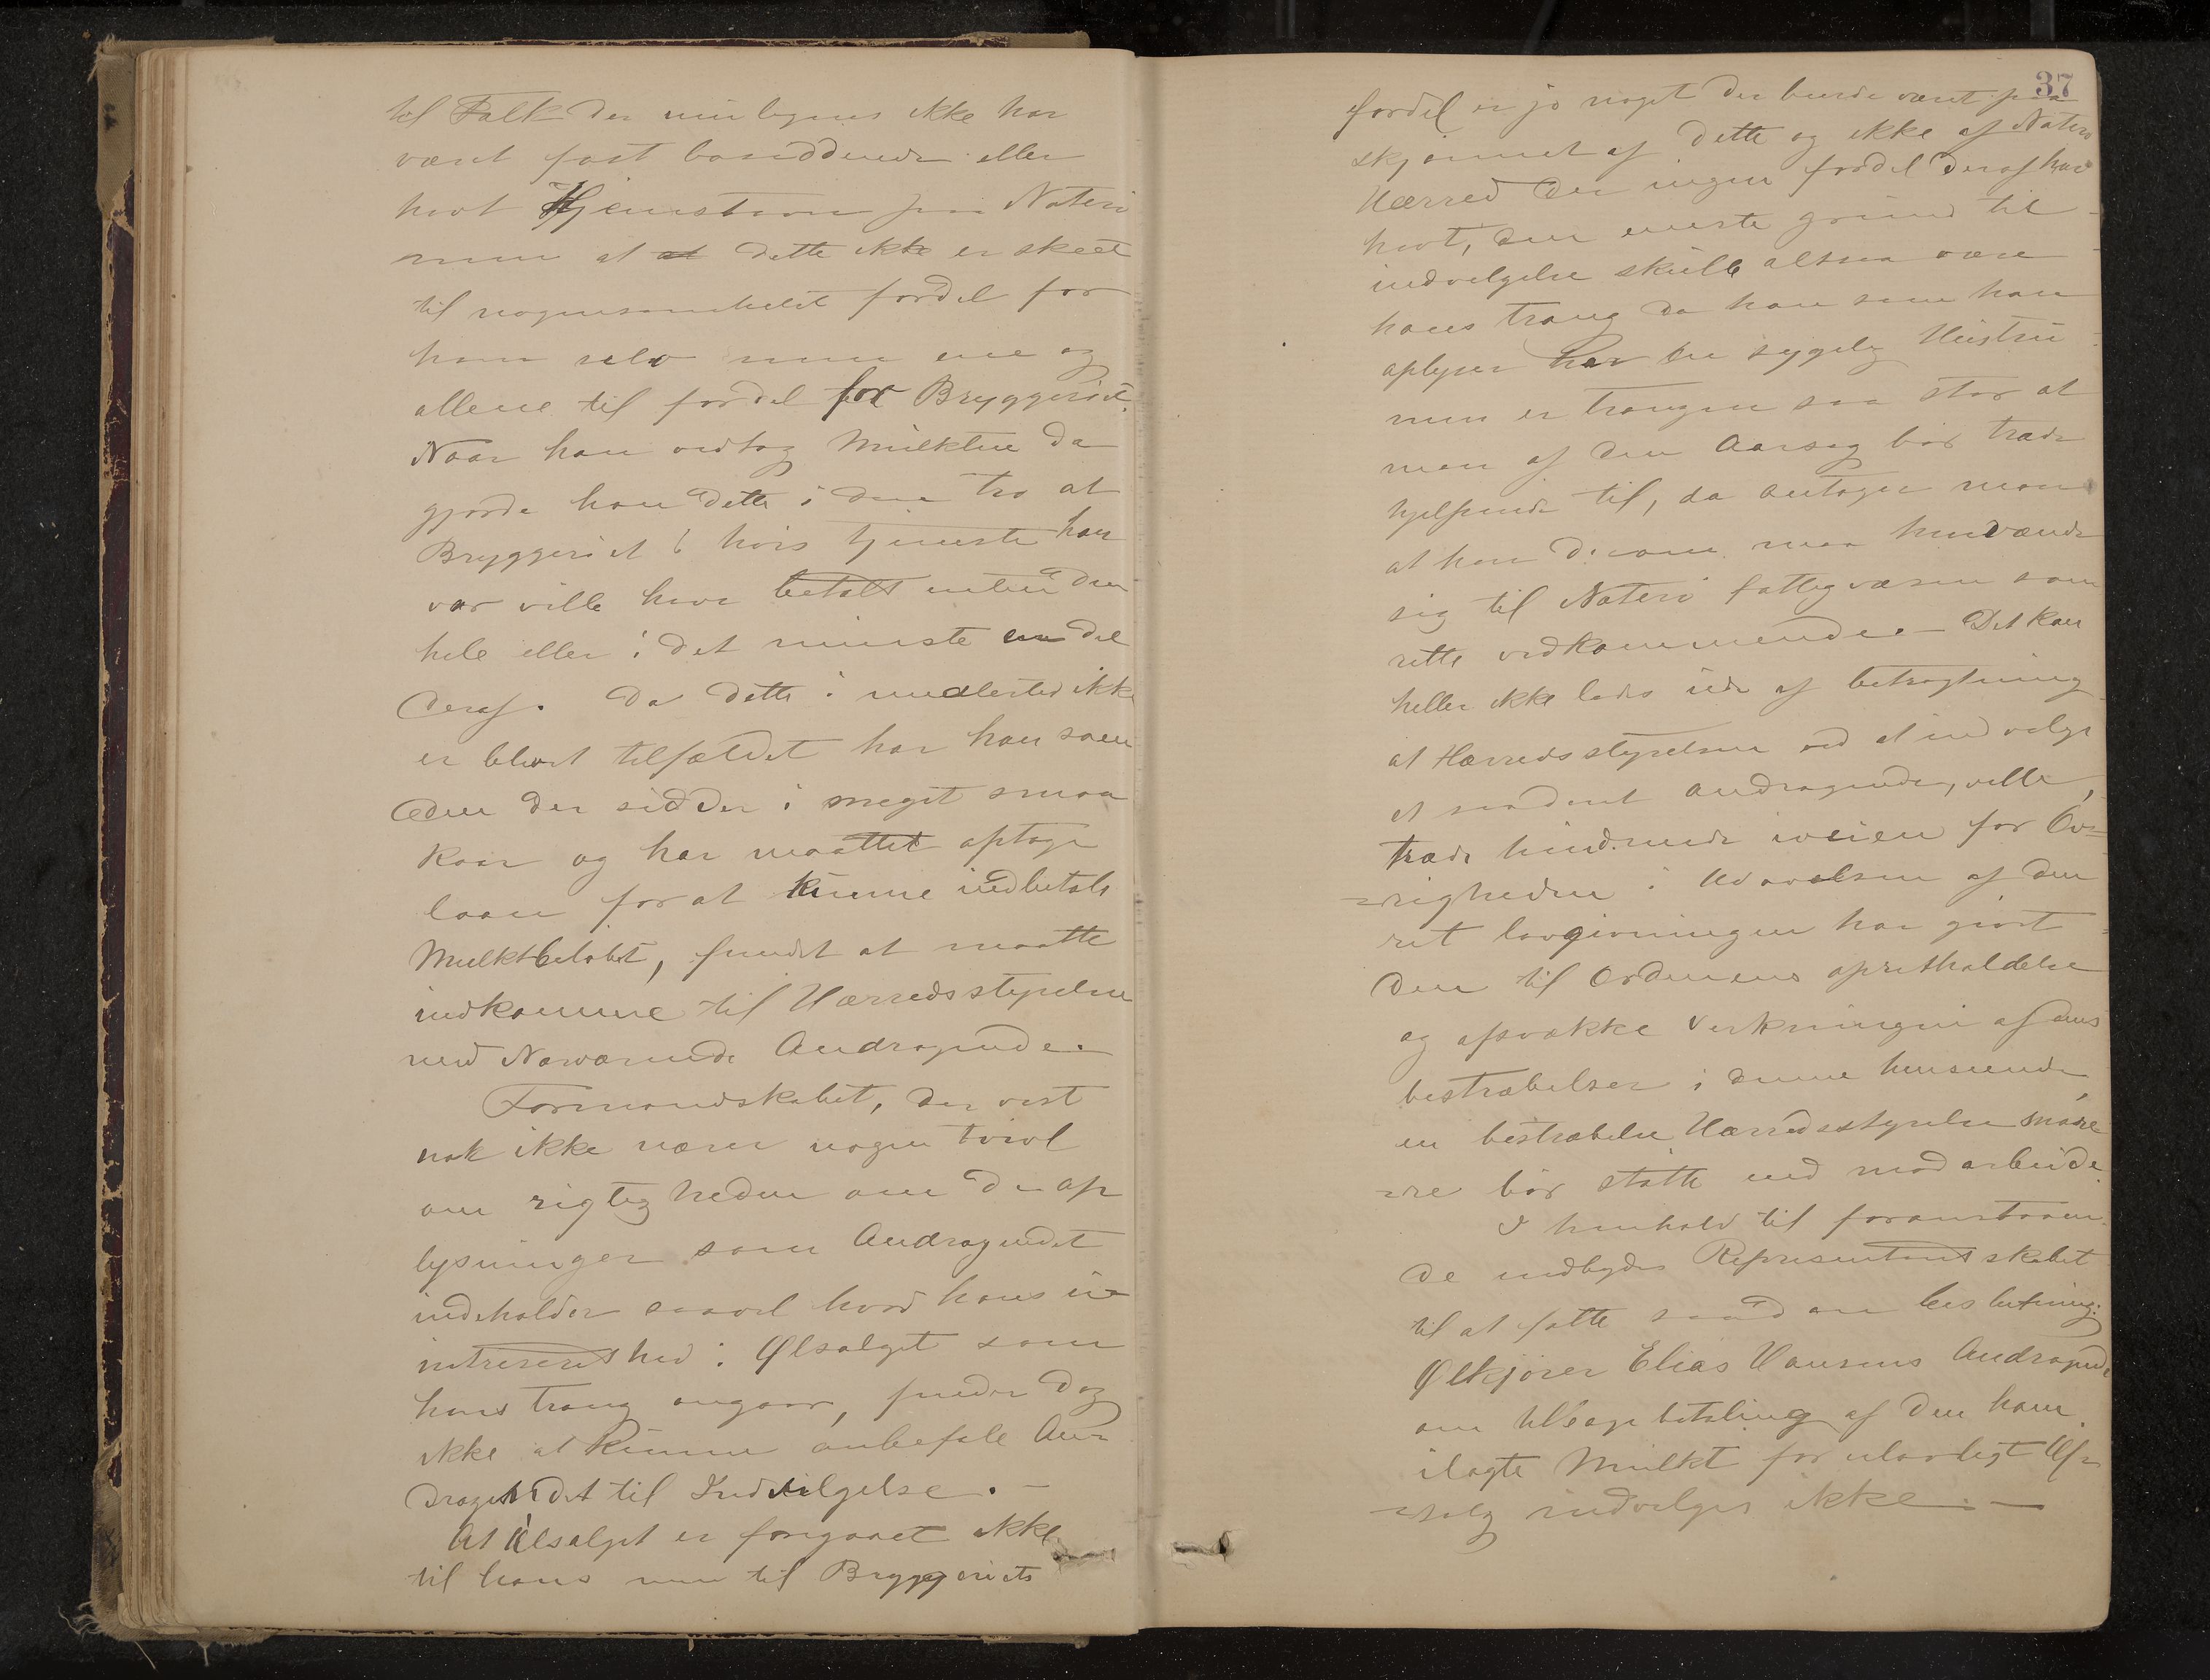 til Folk der muligens ikke har
været fast boendende eller
havt Hjemstavn paa Nøterø
men at at dette ikke er skeet
til nogensomhelst fordel for
ham selv men ene og
allene til fordel for Bryggeriet.
Naar han vedtog Mulkten da
gjorde han dette i den tro at
Bryggeriet i hvis tjeneste han
var ville have betalt enten den
hele eller i det minste en del
deraf. Da dette imidlertid ikke
er blevet tilfældet har han som
den der sidder i meget smaa
kaar og har maattet optage
laan for at kunne indbetale
Mulktbeløbet, fundet at maatte
indkomme til Herredsstyrelsen
med Nærværende Andragende.
Formandskabet, der vist
nok ikke nærer nogen tvivl
om rigtigheden om de op
lysninger som Andragendet
indeholder saavel hvad hans u-
intreserthed i Ølsalget som
hans trang angaar, finder dog
ikke at kunne anbefale An-
dragendet til Indvilgelse. -
At Ølsalget er foregaaet ikke
til hans men til Bryggeriets
37
fordel er jo noget der burde været paa
skjønnet af dette og ikke af Nøterø
Herred der ingen fordel deraf har
havt, den eneste grund til
indvilgelse skulle altsaa være
hans trang da han som han
oplyser har en sygelig Hustru
men er trangen saa stor at
man af den Aarsag bør træde
hjelpende til, da antager man
at han derom maa henvende
sig til Nøterø fattigvæsen som
rette vedkommende. - Det kan
heller ikke lades ude af betragtning
at Herredsstyrelsen ved at indvilge
et saadant andragende, ville
træde hindrende iveien for Øv-
righeden i Udøvelsen af den
ret lovgivningen har givet
den til Ordenens opretholdelse
og afsvække Virkningen af dens
bestræbelser i denne henseende,
en bestræbelse Herredsstyrelsen snare
re bør støtte end modarbeide.
I henhold til foranstaaen
de indbydes Representantskabet
til at fatte saadan beslutning:
Ølkjører Elias Hansens Andragende
om tilbagebetaling af den ham
ilagte Mulkt for ulovligt Øl-
salg indvilges ikke. -